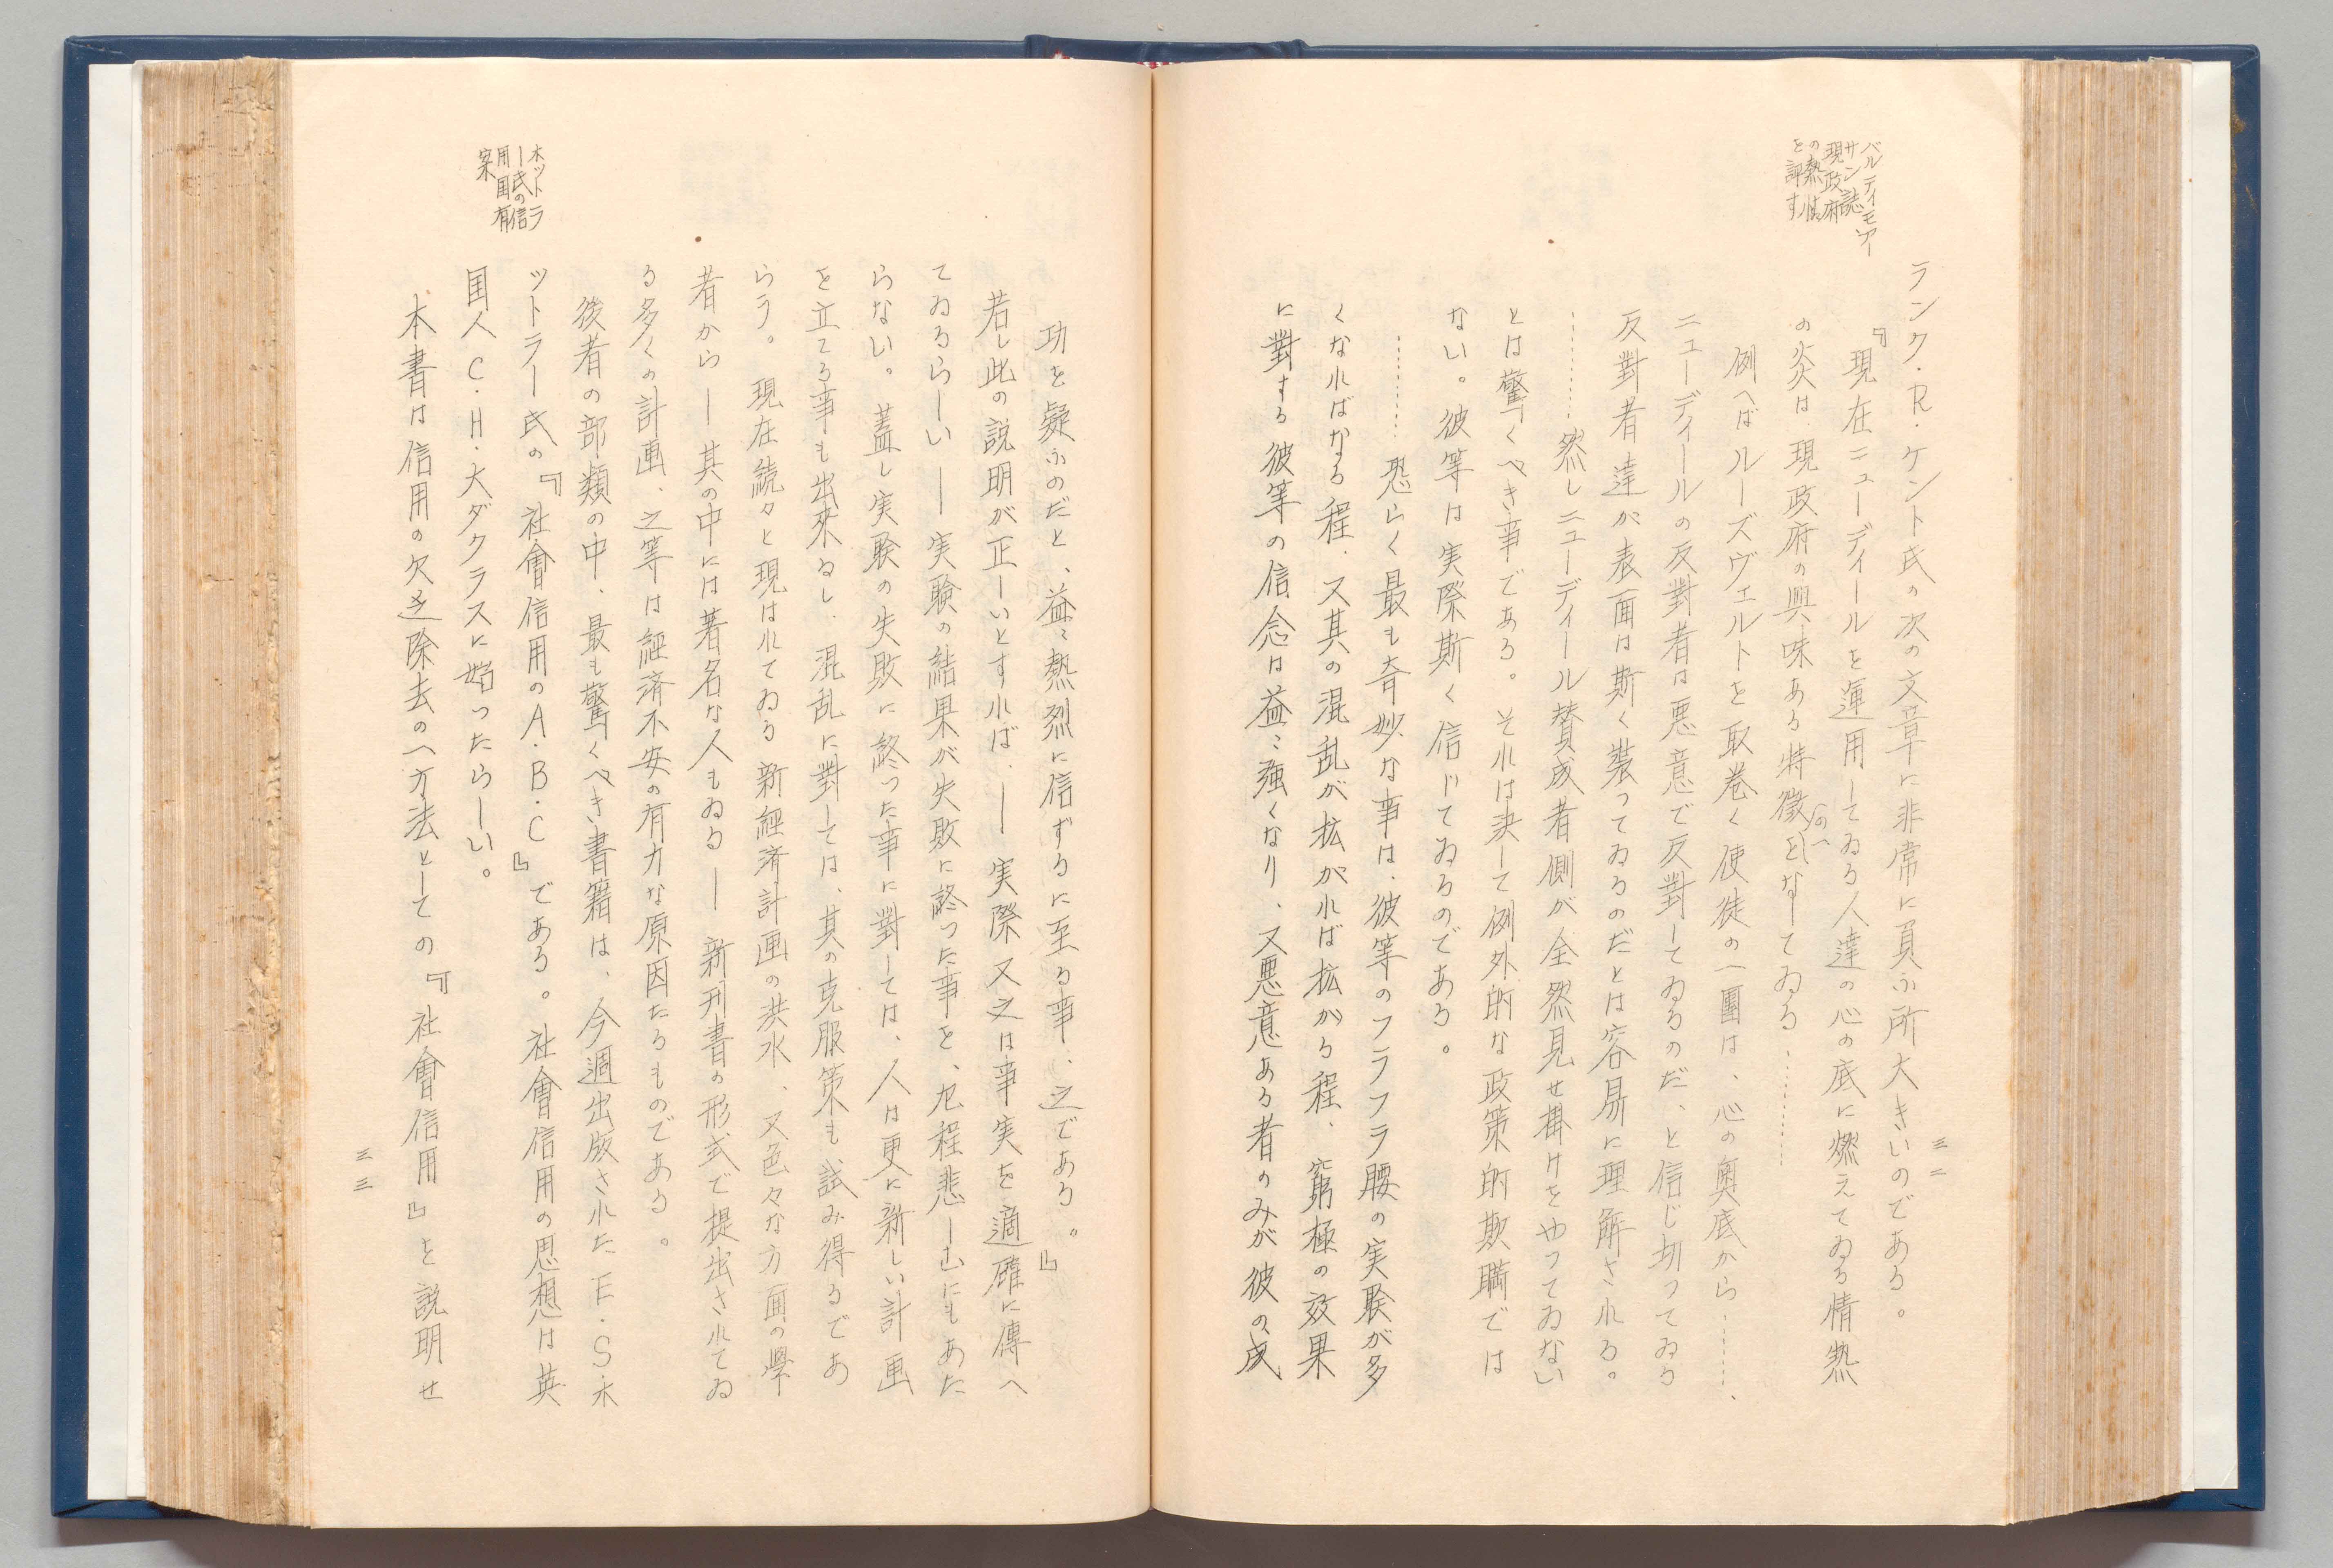 バルティモアー
サン誌、
現政府
の熱情
を評す
ランク・R・ケント氏の次の文章に非常に負ふ所大きいのである。
『現在ニューディールを運用してゐる人達の心の底に燃えてゐる情熱
の炎は、現政府の興味ある特徴をなしてゐる…………
例へばルーズヴェルトを取巻く使徒の一團は、心の奥底から……、
ニューディールの反對者は悪意で反對してゐるのだ、と信じ切つてゐる
反對者達が表面は斯く装つてゐるのだとは容易に理解される。
…………然しニューディール賛成者側が全然見せ掛けをやつてゐない
とは驚くべき事である。それは決して例外的な政策的欺瞞では
ない。彼等は実際斯く信じてゐるのである。
…………恐らく最も奇妙な事は、彼等のフラフラ腰の実験が多
くなればなる程、又其の混乱が拡がれば拡がる程、窮極の效果
に對する彼等の信念は益〻強くなり、又悪意ある者のみが彼の成
三二
功を疑ふのだと、益〻熱烈に信ずるに至る事、之である。』
若し此の説明が正しいとすれば、―実際又之は事実を適確に傳へ
てゐるらしい―実験の結果が失敗に終つた事を、左程悲しむにもあた
らない。蓋し実験の失敗に終つた事に對しては、人は更に新しい計画
を立てる事も出來るし、混乱に對しては、其の克服策も試み得るであ
らう。現在続々と現はれてゐる新經済計画の洪水、又色々な方面の學
者から―其の中には著名な人もゐる―新刊書の形式で提出されてゐ
る多くの計画、之等は經済不安の有力な原因たるものである。
後者の部類の中、最も驚くべき書籍は、今週出版されたE・S・ホ
ットラー氏の『社會信用のA・B・C』である。社會信用の思想は英
国人C・H・大ダクラスに始つたらしい。
本書は信用の欠乏除去の一方法としての『社會信用』を説明せ
ホットラ
ー氏の信
用国有
案
三三